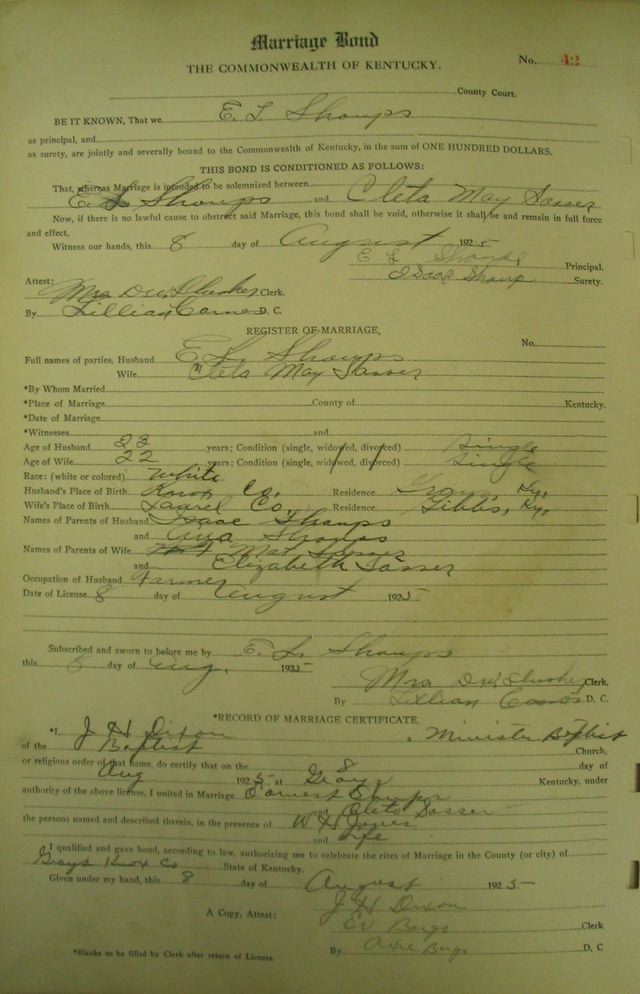 Marriage Bond
THE COMMONWEALTH OF KENTUCKY.
No. 42
County Court.
BE IT KNOWN, That we E. L. Shoups
as principal, and
as surety, are jointly and severally bound to the Commonwealth of Kentucky, in the sum of ONE HUNDRED DOLLARS,
THIS BOND IS CONDITIONED AS FOLLOWS:
That, whereas Marriage is intended to be solemnized between
E. L. Shoups and Cleta May Sasser
Now, if there is no lawful cause to obstract said Marriage, this bond shall be void, otherwise it shall be and remain in full force
and effect.
Witness our hands, this 8 day of August 1925
E L Principal,
Surety.
Attest:
Mrs D W. Slusher Clerk.
By Lillian D. C.
REGISTER OF MARRIAGE,
No.
Full names of parties, Husband E. L. Shoups
Wife Cleta May Sasser
*By Whom Married
*Place of Marriage County of Kentucky.
*Date of Marriage
*Witnesses and
Age of Husband 23 years; Condition (single, widowed, divorced) Single
Age of Wife 22 years; Condition (single, widowed, divorced) Single
Race: (white or colored) White
Husband's Place of Birth Knox Co. Residence Ky.
Wife's Place of Birth Laurel Co. Residence Gibbs, Ky.
Names of Parents of Husband Isaac Shoups
and Shoups
Names of Parents of Wife Mat Sasser
and Elizabeth Sasser
Occupation of Husband Farmer
Date of License 8 day of August 1925
Subscribed and sworn to before me by E. L. Shoups
this day of Aug. 1925
Mrs D W. Slusher Clerk,
By Lillian D. C.
*RECORD OF MARRIAGE CERTIFICATE.
*I, J H Dixon a Minister Baptist
of the Baptist Church,
or religious order of that name, do certify that on the 8 day of
Aug 1925 at Grays Kentucky, under
authority of the above license, I united in Marriage Shoups
and Cleta Sasser
the persons named and described therein, in the presence of W H Jones
and wife
I qualified and gave bond, according to law, authorizing me to celebrate the rites of Marriage in the County (or city) of
Grays Knox Co State of Kentucky.
Given under my hand, this 8 day of August 1925
J H Dixon
A Copy, Attest: Clerk
By D. C
*Blanks to be filled by Clerk after return of License.